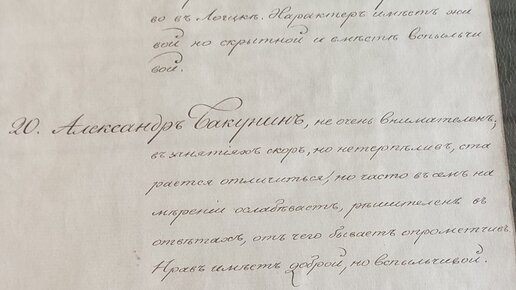 во въ Логикѣ. Характеръ имѣетъ жи
вой но скрытной и вмѣстѣ вспыльчи
вой.
20. Александръ Бакунинъ, не очень внимателенъ,
въ занятіяхъ скоръ, но нетерпѣливъ, ста
рается отличиться, но часто въ семъ на
мѣреніи ослабѣваетъ, рѣшителенъ въ
отвѣтахъ, отъ чего бываетъ опрометчивъ.
Нравъ имѣетъ доброй, но вспыльчивой.